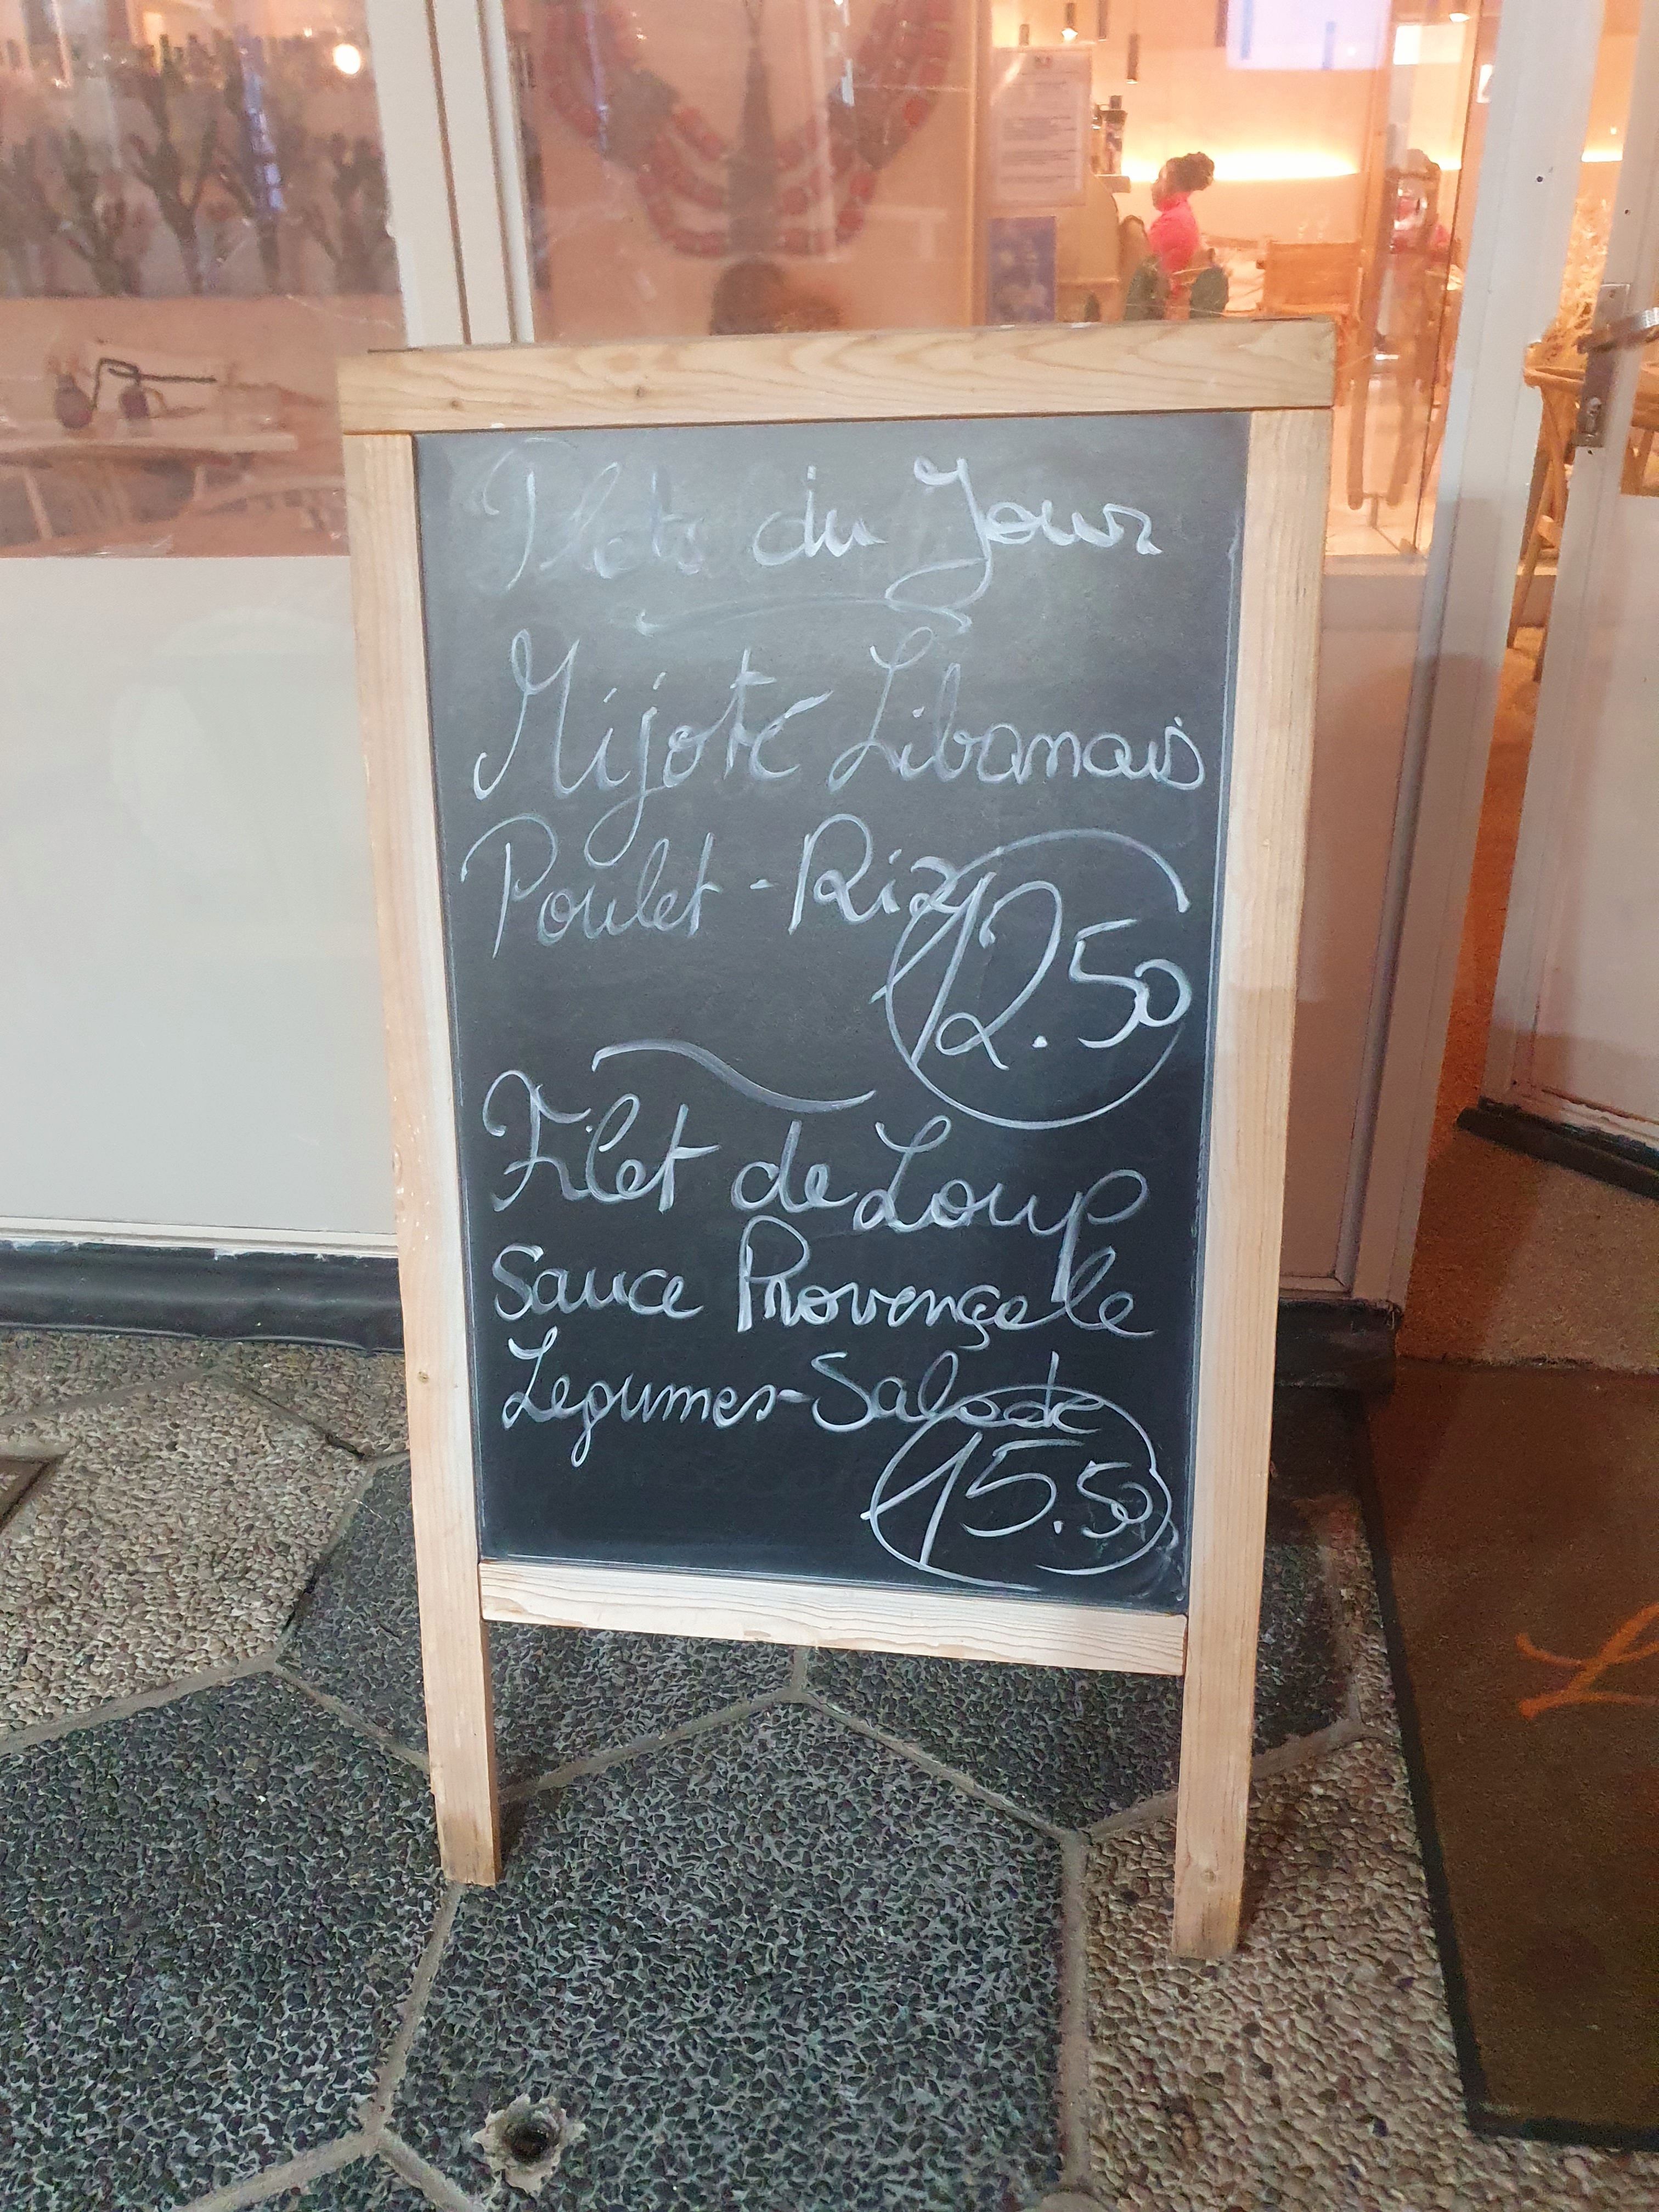 Plats du Jour
Mijoté Libanais
Poulet - Riz
12.50
Filet de Loup
Sauce Provençale
Legumes - Salade
15.50